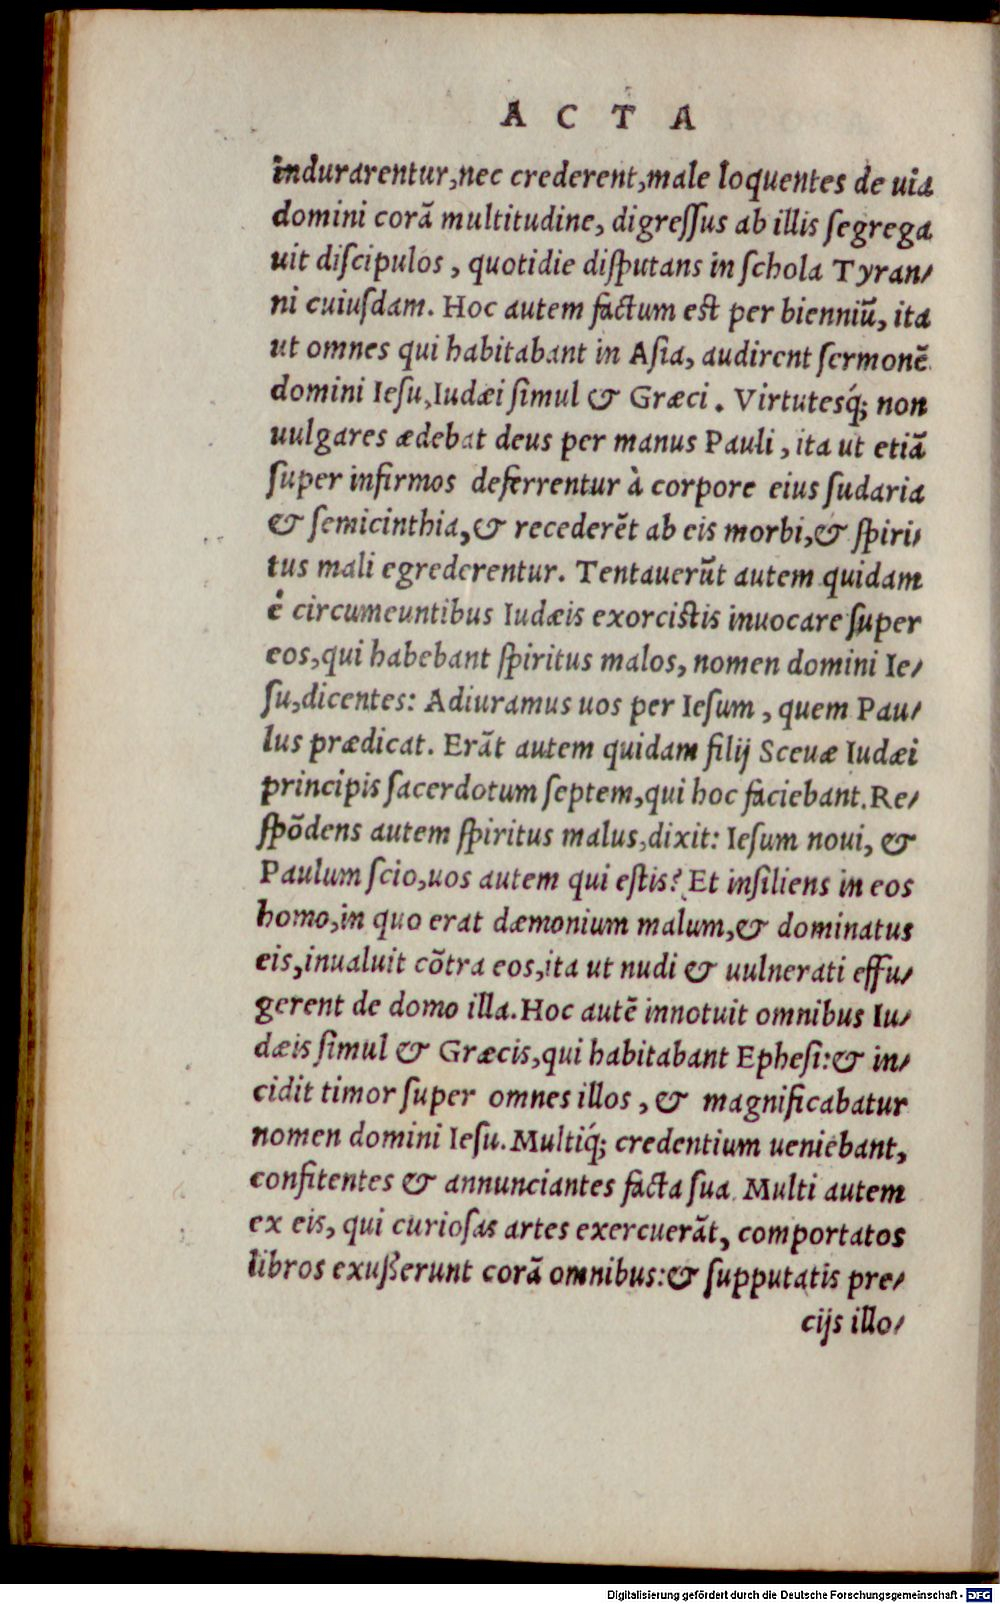 A C T A
indurarentur, nec crederent, male loquentes de uia
domini corã multitudine, digreſſus ab illis ſegrega
uit diſcipulos, quotidie diſputans in ſchola Tyran⸗
ni cuiuſdam. Hoc autem factum est per bienniũ, ita
ut omnes qui habitabant in Aſia, audirent ſermonẽ
domini Ieſu, Iudæi ſimul & Græci. Virtutesq́; non
uulgares ædebat deus per manus Pauli, ita ut etiã
ſuper infirmos deferrentur à corpore eius ſudaria
& ſemicinthia, & recederẽt ab eis morbi, & ſpiri⸗
tus mali egrederentur. Tentauerũt autem quidam
è circumeuntibus Iudæis exorcistis inuocare ſuper
eos, qui habebant ſpiritus malos, nomen domini Ie⸗
ſu, dicentes: Adiuramus uos per Ieſum, quem Pau⸗
lus prædicat. Erãt autem quidam filij Sceuæ Iudæi
principis ſacerdotum ſeptem, qui hoc faciebant. Re⸗
ſpõdens autem ſpiritus malus, dixit: Ieſum noui, &
Paulum ſcio, uos autem qui eſtis? Et inſiliens in eos
homo, in quo erat dæmonium malum, & dominatus
eis, inualuit cõtra eos, ita ut nudi & uulnerati effu⸗
gerent de domo illa. Hoc autẽ innotuit omnibus Iu⸗
dæis ſimul & Græcis, qui habitabant Epheſi: & in⸗
cidit timor ſuper omnes illos, & magnificabatur
nomen domini Ieſu. Multiq́; credentium ueniebant,
confitentes & annunciantes facta ſua. Multi autem
ex eis, qui curioſas artes exercuerãt, comportatos
libros exußerunt corã omnibus: & ſupputatis pre⸗
cijs illo⸗
Digitalisierung gefördert durch die Deutsche Forschungsgemeinschaft - DFG